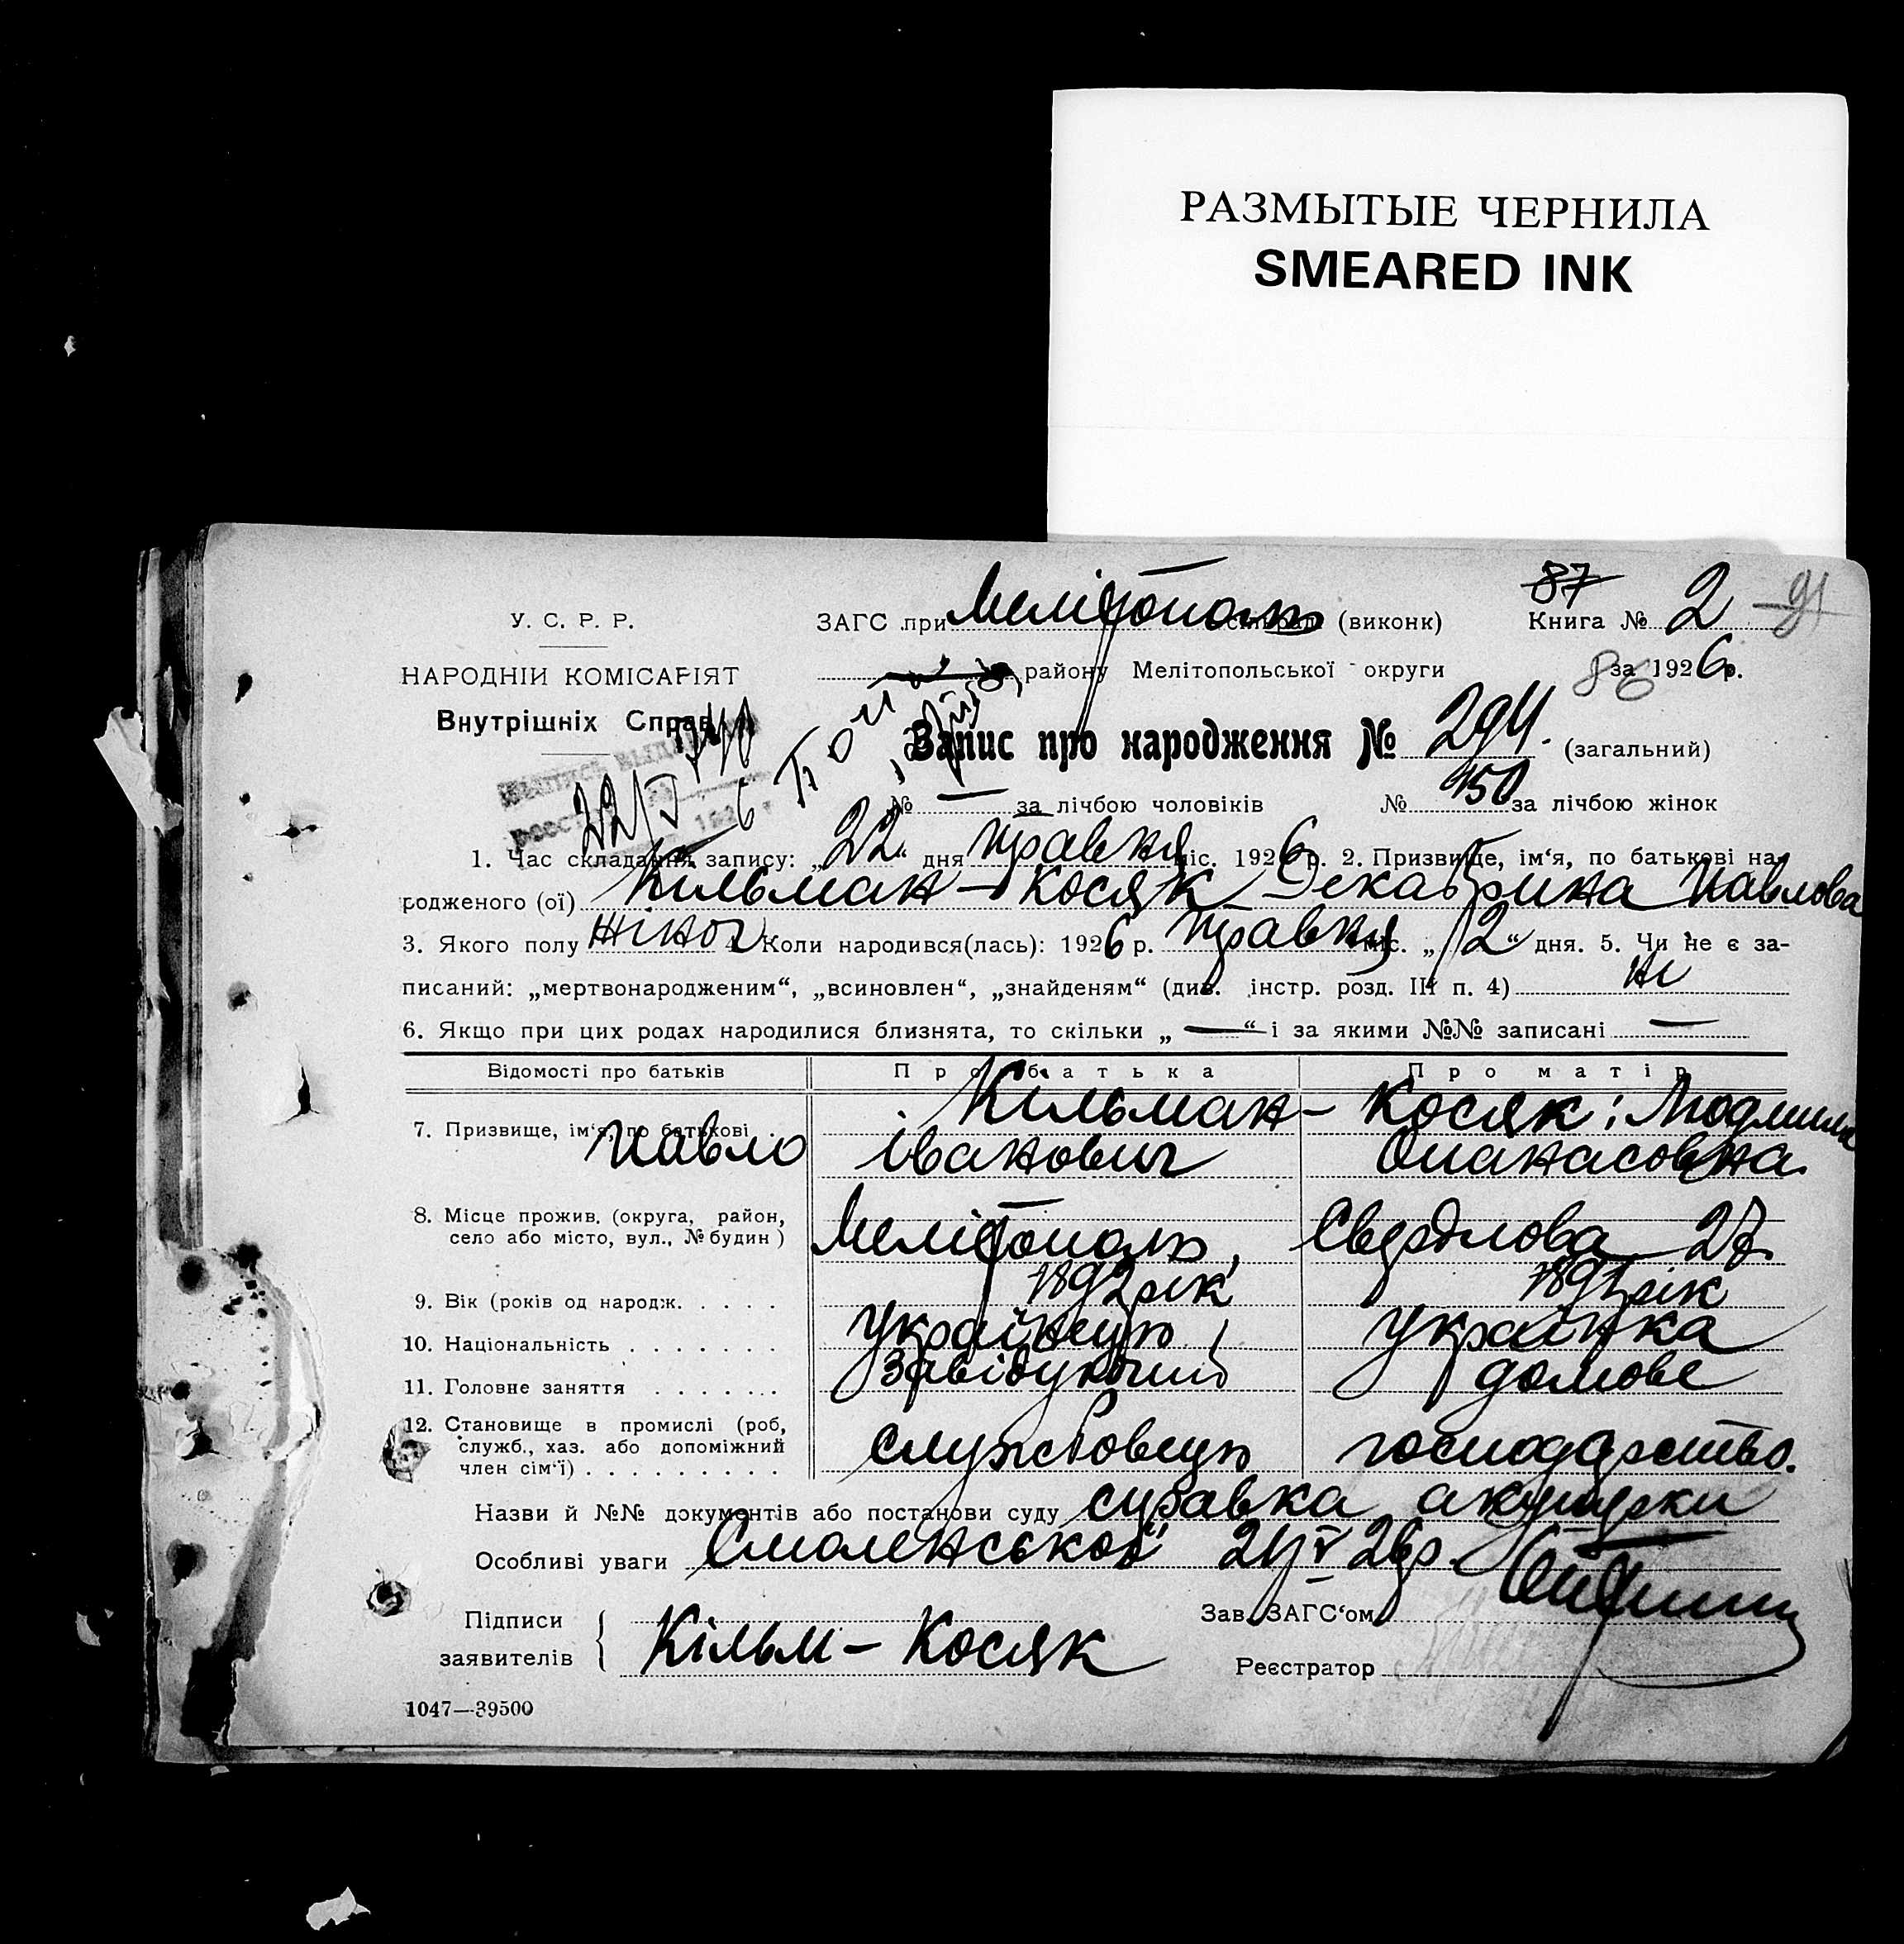 РАЗМЫТЫЕ ЧЕРНИЛА
SMEARED INK
87
У. С. Р. Р. ЗАГС при Мелітополь (виконк) Книга № 2 91
НАРОДНІЙ КОМІСАРІЯТ району Мелітопольської округи 86 за 1926 р.
Внутрішніх Справ Запис про народження № 294. (загальний)
№ — за лічбою чоловіків № 150 за лічбою жінок
22/V
1. Час складання запису: „22“ дня травня міс. 1926 р. 2. Призвище, ім‘я, по батькові на-
родженого (ої) Кільман – Косяк Декабрина Павлова
3. Якого полу жіноч 4. Коли народився(лась): 1926 р. травня міс. „12“ дня. 5. Чи не є за-
писаний: „мертвонародженим“, „всиновлен“, „знайденям“ (див. інстр. розд. III п. 4) ні
6. Якщо при цих родах народилися близнята, то скільки „—“ і за якими №№ записані —
Відомості про батьків Про батька Про матір
7. Призвище, ім‘я, по батькові Кільман – Косяк; Людмила
Павло Іванович Опанасовна.
8. Місце прожив. (округа, район,
село або місто, вул., № будин) Мелітополь, Свердлова 27.
9. Вік (років од народж. . . . . 1892 рік 1892 рік
10. Національність . . . . . . . Українець Українка
11. Головне заняття . . . . . . . Завідуючий домове
12. Становище в промислі (роб,
служб., хаз. або допоміжний службовець господарство.
член сім‘ї) . . . . . . . . .
Назви й №№ документів або постанови суду справка акушерки
Особливі уваги Смоленської 21/V 26 р.
Підписи Зав. ЗАГС‘ом
заявителів { Кільм – Косяк Реєстратор
1047—39500